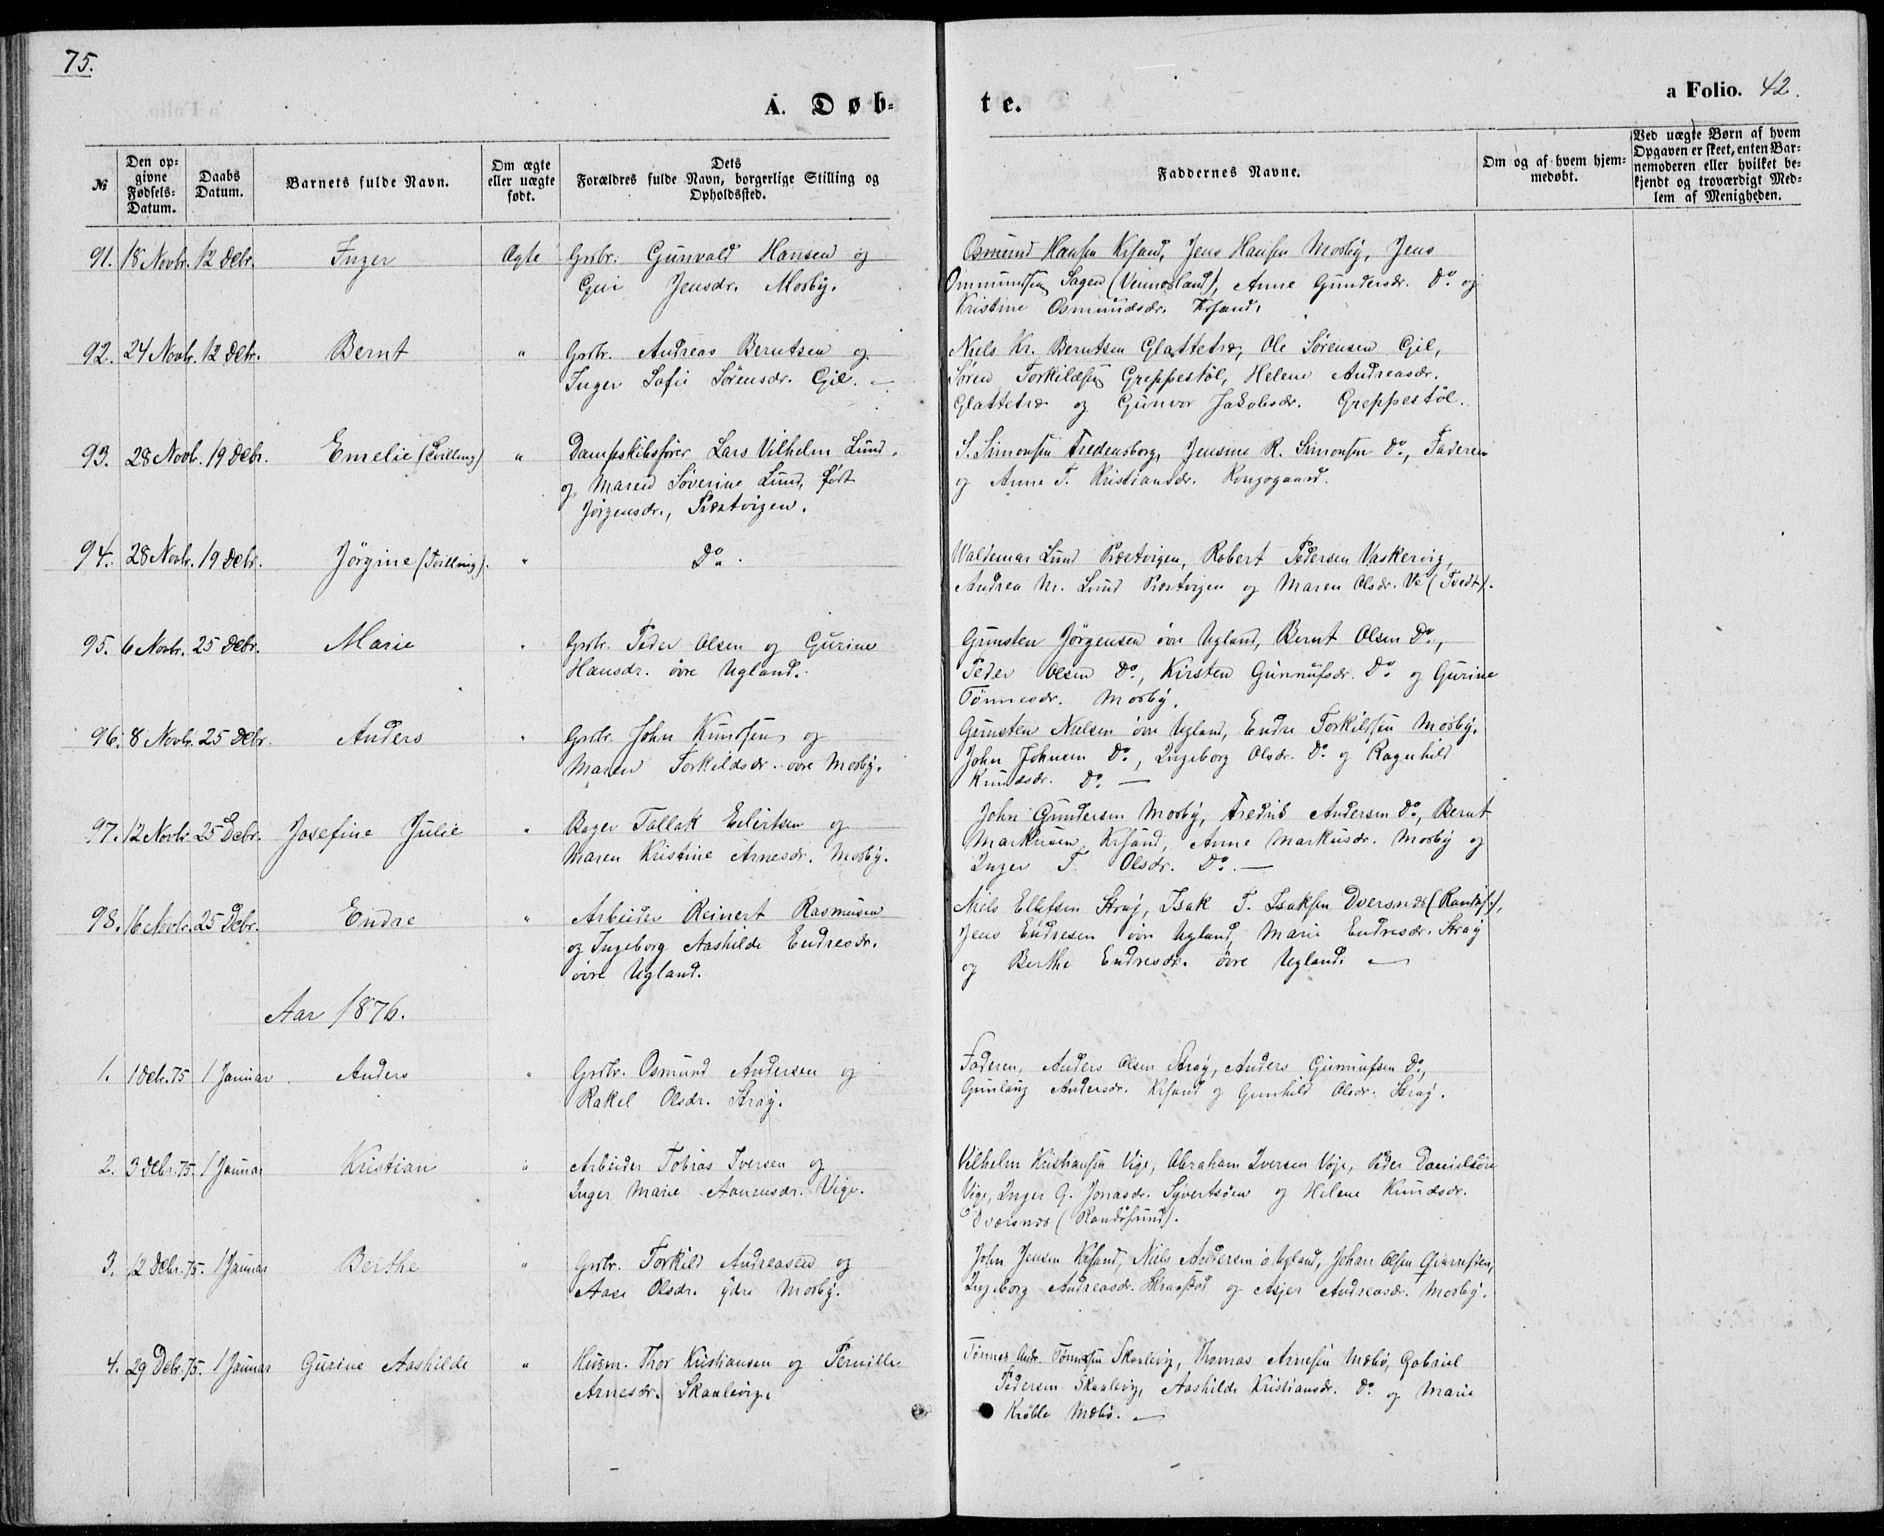 75.
A. Døb-
te.
a Folio. 42.
№
Den op-
givne
Fødsels-
Datum.
Daabs
Datum.
Barnets fulde Navn.
Om ægte
eller uægte
født.
Dets
Forældres fulde Navn, borgerlige Stilling og
Opholdssted.
Faddernes Navne.
Om og af hvem hjem-
medøbt.
Ved uægte Børn af hvem
Opgaven er skeet, enten Bar-
nemoderen eller hvilket be-
kjendt og troværdigt Med-
lem af Menigheden.
91. 18 Novbr. 12 Debr. Inger Ægte Grbr. Gunvald Hansen og
Guri Jensdr. Mosby.
Osmund Hansen Krsand, Jens Hansen Mosby, Jens
Ommundsen Sagen (Vennesland), Anne Gundersdr. Do og
Kristine Osmundsdr. Krsand.
92. 24 Novbr. 12 Debr. Bernt " Grbr. Andreas Berntsen og
Inger Sofie Sørensdr. Gil. —
Niels Kr. Berntsen Glattetre, Ole Sørensen Gil,
Søren Torkildsen Greppestøl, Helene Andreasdr.
Glattetre og Gunvor Jakobsdr. Greppestøl.
93. 28 Novb. 19 Debr. Emelie (Tvilling) " Dampskibsfører Lars Vilhelm Lund
og Maren Søverine Lund, født
Jørgensdr., Præstvigen.
S. Simonsen Fredensborg, Jensine R. Simonsen Do, Faderen
og Anne T. Kristiansdr. Kongsgaard.
94. 28 Novbr. 19 Debr. Jørgine (Tvilling). " Do.
Waldemar Lund Præstvigen, Robert Pedersen Vaskervig,
Andrea M. Lund Præstvigen og Maren Olsdr. Ve (Tvedt).
95. 6 Novbr. 25 Debr. Marie " Grbr. Peder Olsen og Gurine
Hansdr. øvre Ugland.
Gunsten Jørgensen øvre Ugland, Bernt Olsen Do,
Peder Olsen Do, Kirsten Gunnufsdr. Do og Gurine
Tønnesdr. Mosby.
96. 8 Novbr. 25 Debr. Anders " Grbr. John Knudsen og
Maren Torkildsdr. øvre Mosby.
Gunsten Nielsen øvre Ugland, Endre Torkildsen Mosby,
John Johnsen Do, Ingeborg Olsdr. Do og Ragnhild
Knudsdr. Do —
97. 12 Novbr. 25 Debr. Josefine Julie " Bager Tallak Eilertsen og
Maren Kristine Arnesdr. Mosby.
John Gundersen Mosby, Fredrik Andersen Do, Bernt
Markusen Krsand, Anne Markusdr. Mosby og
Inger T. Olsdr. Do. —
98. 16 Novbr. 25 Debr. Endre " Arbeider Reinert Rasmusen
og Ingeborg Aashilde Endresdr.
øvre Ugland.
Niels Ellefsen Straj, Isak T. Isaksen Dversnes (Randøs.),
Jens Endresen øvre Ugland, Marie Endresdr. Straj
og Berthe Endresdr. øvre Ugland. —
Aar 1876.
1. 1 Debr. 75 1 Januar Anders " Grbr. Osmund Andersen og
Rakel Olsdr. Straj.
Faderen, Anders Olsen Straj, Anders Gunnufsen Do,
Gunlaug Andersdr. Krsand og Gunhild Olsdr. Straj.
2. 3 Debr. 75. 1 Januar Kristian " Arbeider Tobias Iversen og
Inger Marie Aanensdr. Vige.
Vilhelm Kristiansen Vige, Abraham Iversen Voje, Peder Danielsen
Vige, Inger G. Jonasdr. Syvertsøen og Helene Knudsdr.
Dversnes (Randøsund).
3. 12 Debr. 75. 1 Januar Berthe " Grbr. Torkild Andreasen og
Aase Olsdr. ydre Mosby.
John Jensen Krsand, Niels Andersen ø. Ugland, Johan Olsen
Ingeborg Andreasdr. og Asjer Andreasdr. Mosby.
4. 29 Debr. 75. 1 Januar Gurine Aashilde " Husm. Thor Kristiansen og Pernille
Arnesdr. Skaalevig.
Tønnes Andr. Tønnesen Skaalevig, Thomas Arnesen Mæbø, Gabriel
Pedersen Skaalevig, Aashilde Kristiansdr. Do og Marie
Krølle Mæbø. —